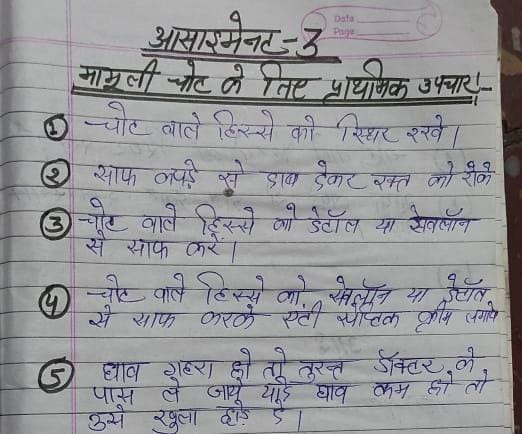 Date
Page
आसाइमेनट-3
मामूली चोट के लिए प्राथमिक उपचार!-
① चोट वाले हिस्से को स्थिर रखे।
② साफ कपड़े से दाब देकर रक्त को रोके
③ चोट वाले हिस्से को डेटॉल या सेवलॉन
से साफ करें।
④ चोट वाले हिस्से को सेवलॉन या डेटॉल
से साफ करके एंटी सेप्टिक क्रीम लगाये
⑤ घाव गहरा हो तो तुरन्त डॉक्टर के
पास ले जाये यदि घाव कम हो तो
उसे खुला छोड़ दे।